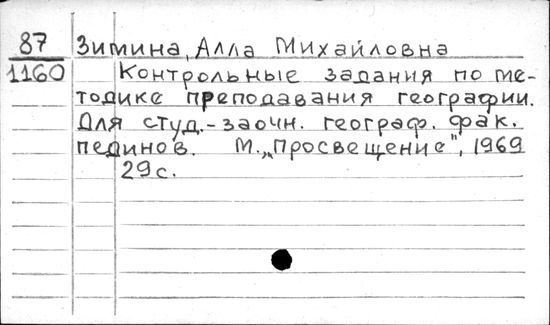 87 Зимина, Алла Михайловна
1160 Контрольные задания по ме-
тодике преподавания географии.
Для студ.-заочн. географ. фак.
пединов. М., „Просвещение", 1969
29с.